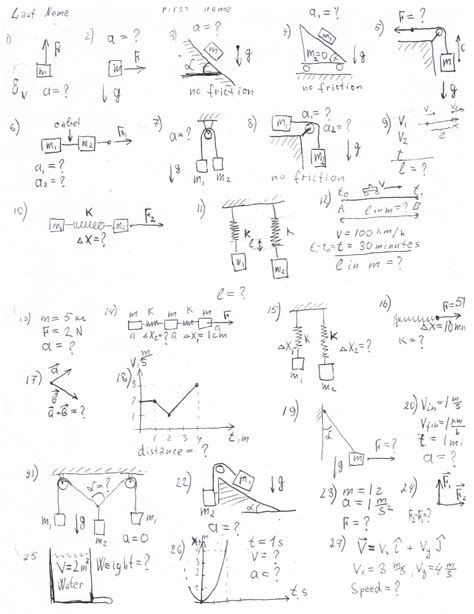 Last Name First name
1) F m g a = ?
2) a = ? m F g
3) a = ? m g α no friction
4) a₁ = ? m₁ m₂=0 g no friction
5) F = ? m g
6) cabel m₁ m₂ F₁
a₁ = ?
a₂ = ?
7) a = ? g m₁ m₂
8) a₁ = ? m₁ a₂ = ? m₂ g no friction
9) V₁
V₂
t
l = ?
10) m₁ K m₂ F₂
ΔX = ?
11) K K l m₁ m₂
l = ?
12) t₀ V t₁
A l in m = ? B
V = 100 km/h
t₁-t₀=t = 30 minutes
l in m = ?
13) m = 5 kg
F = 2N
a = ?
14) m K m K m F
a ΔX₂=? a ΔX₁=1cm
15) ΔX₁ K ΔX₂=? m₁ m₂
16)
K = ?
17) a
b
a+b = ?
18) V, m/s
3
2
1
1 2 4 t, m
distance = ?
19) α m F = ? g
20) Vin = 1 m/s
Vfin = 1 km/h
t = 1 mi
a = ?
21) α = ? m₁ m₂ m₁ a=0
22) m₂ m₁ g α
a = ?
23) m = 12
a = 1 m/s²
F = ?
24) F₁ F₂
25 V = 2m³ Water Weight = ?
26) t = 1s
V = ?
a = ?
t, s
27) V = Vx i + Vy j
Vx = 3 m/s, Vy = 4 m/s
Speed = ?